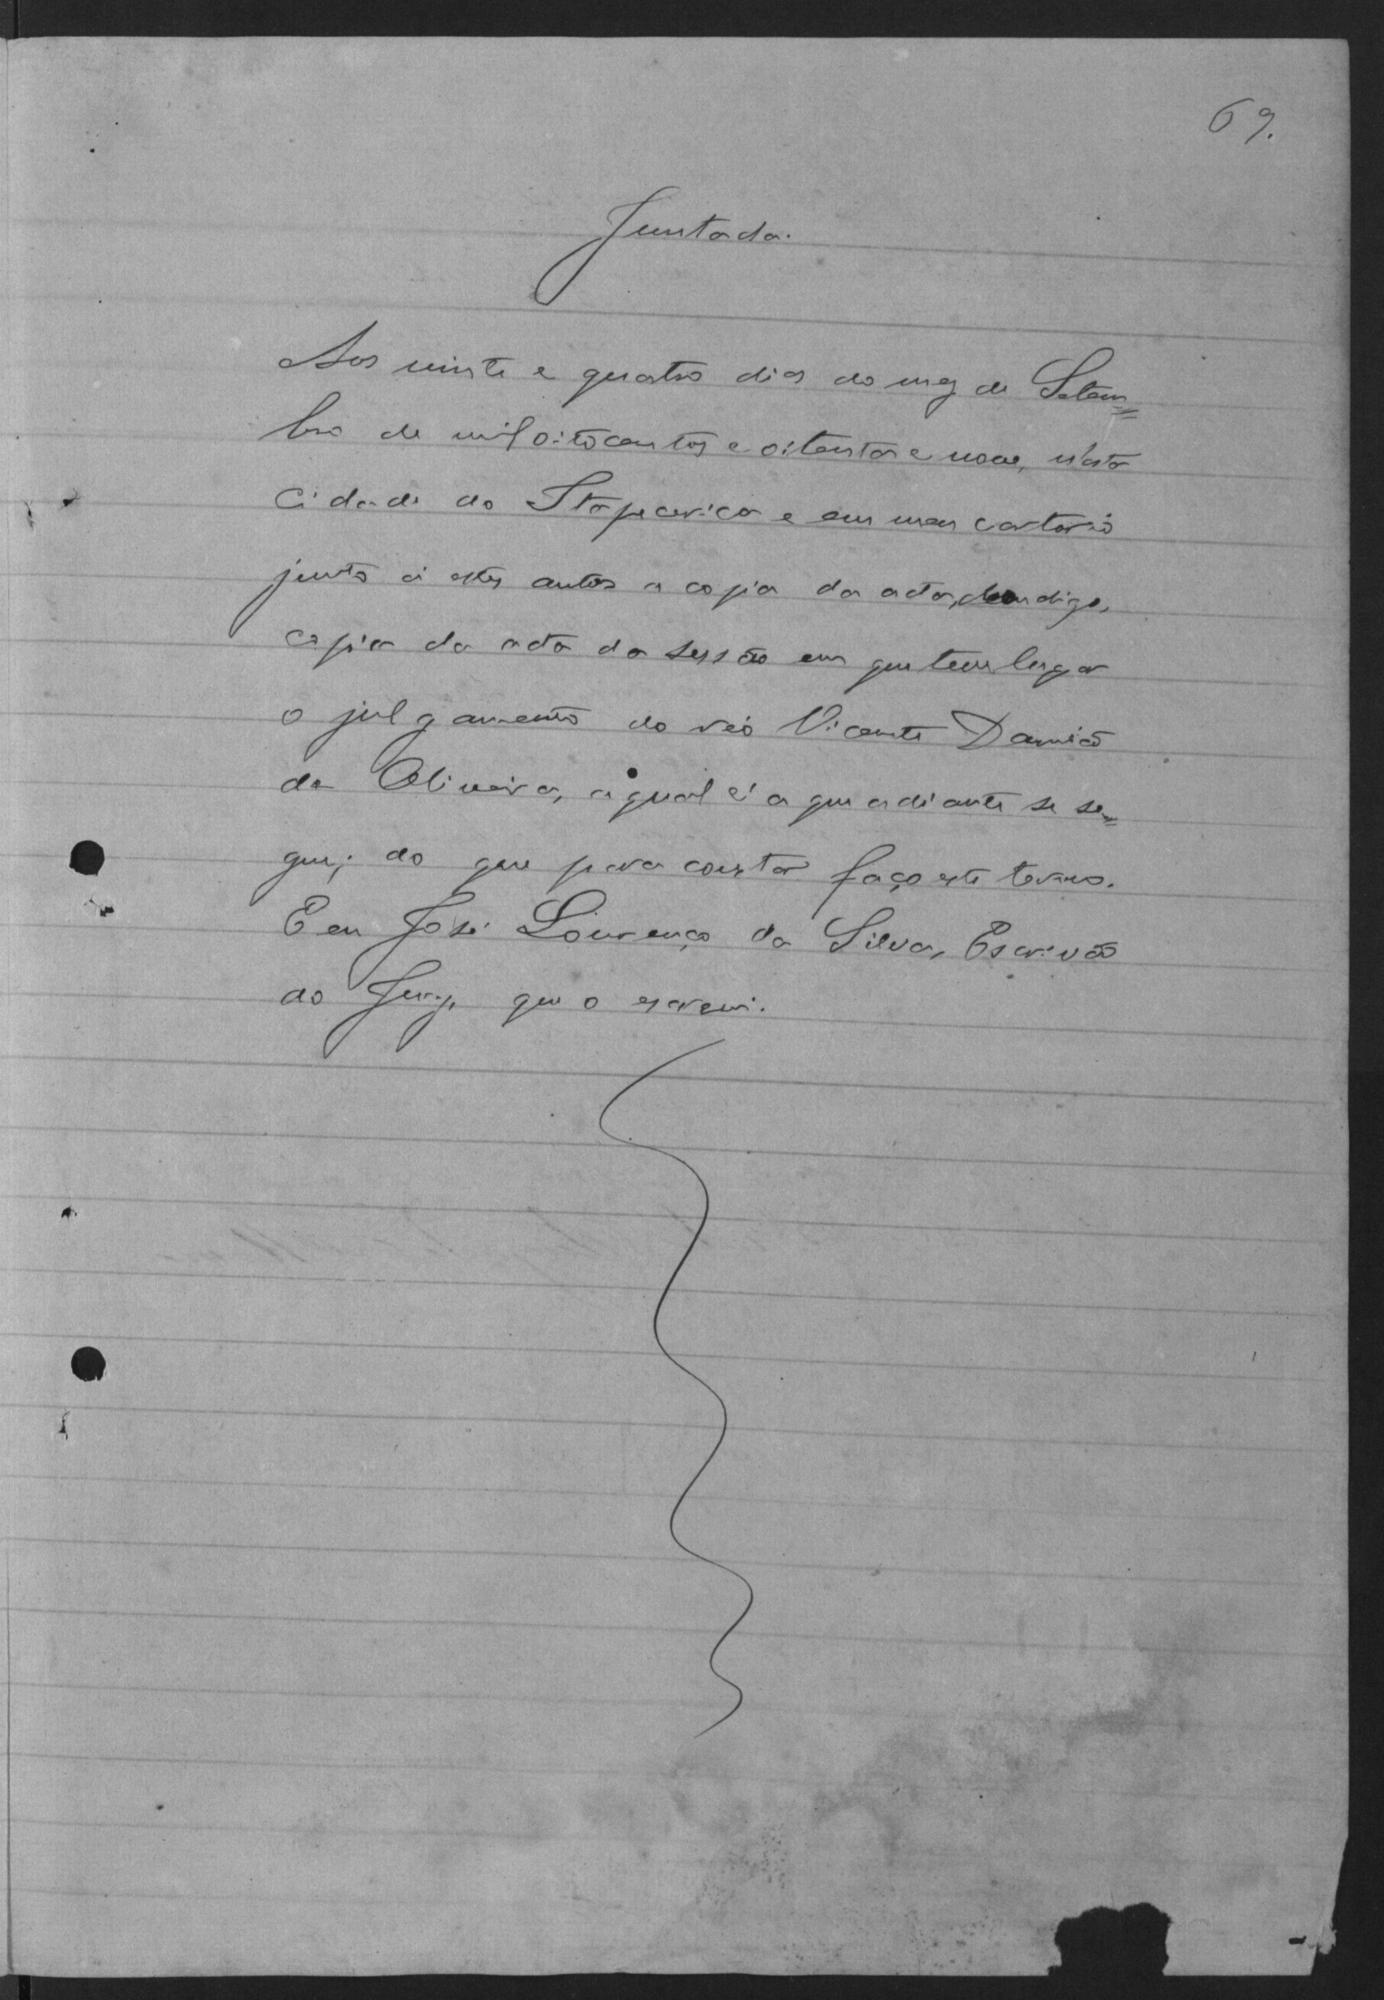 69.
Juntada.
Aos vinte e quatro dias do mez de Setem=
bro de mil oitocentos e oitenta e nove, n'esta
Cidade do Itapecerica e em meu cartorio
junto á estes autos a copia da acta, digo,
copia da acta da sessão em que teve lugar
o julgamento do réo Vicente Damião
de Oliveira, a qual é a que adiante se se=
gue; do que para constar faço este termo.
E eu José Lourenço da Silva, Escrivão
do Jury, que o escrevi.